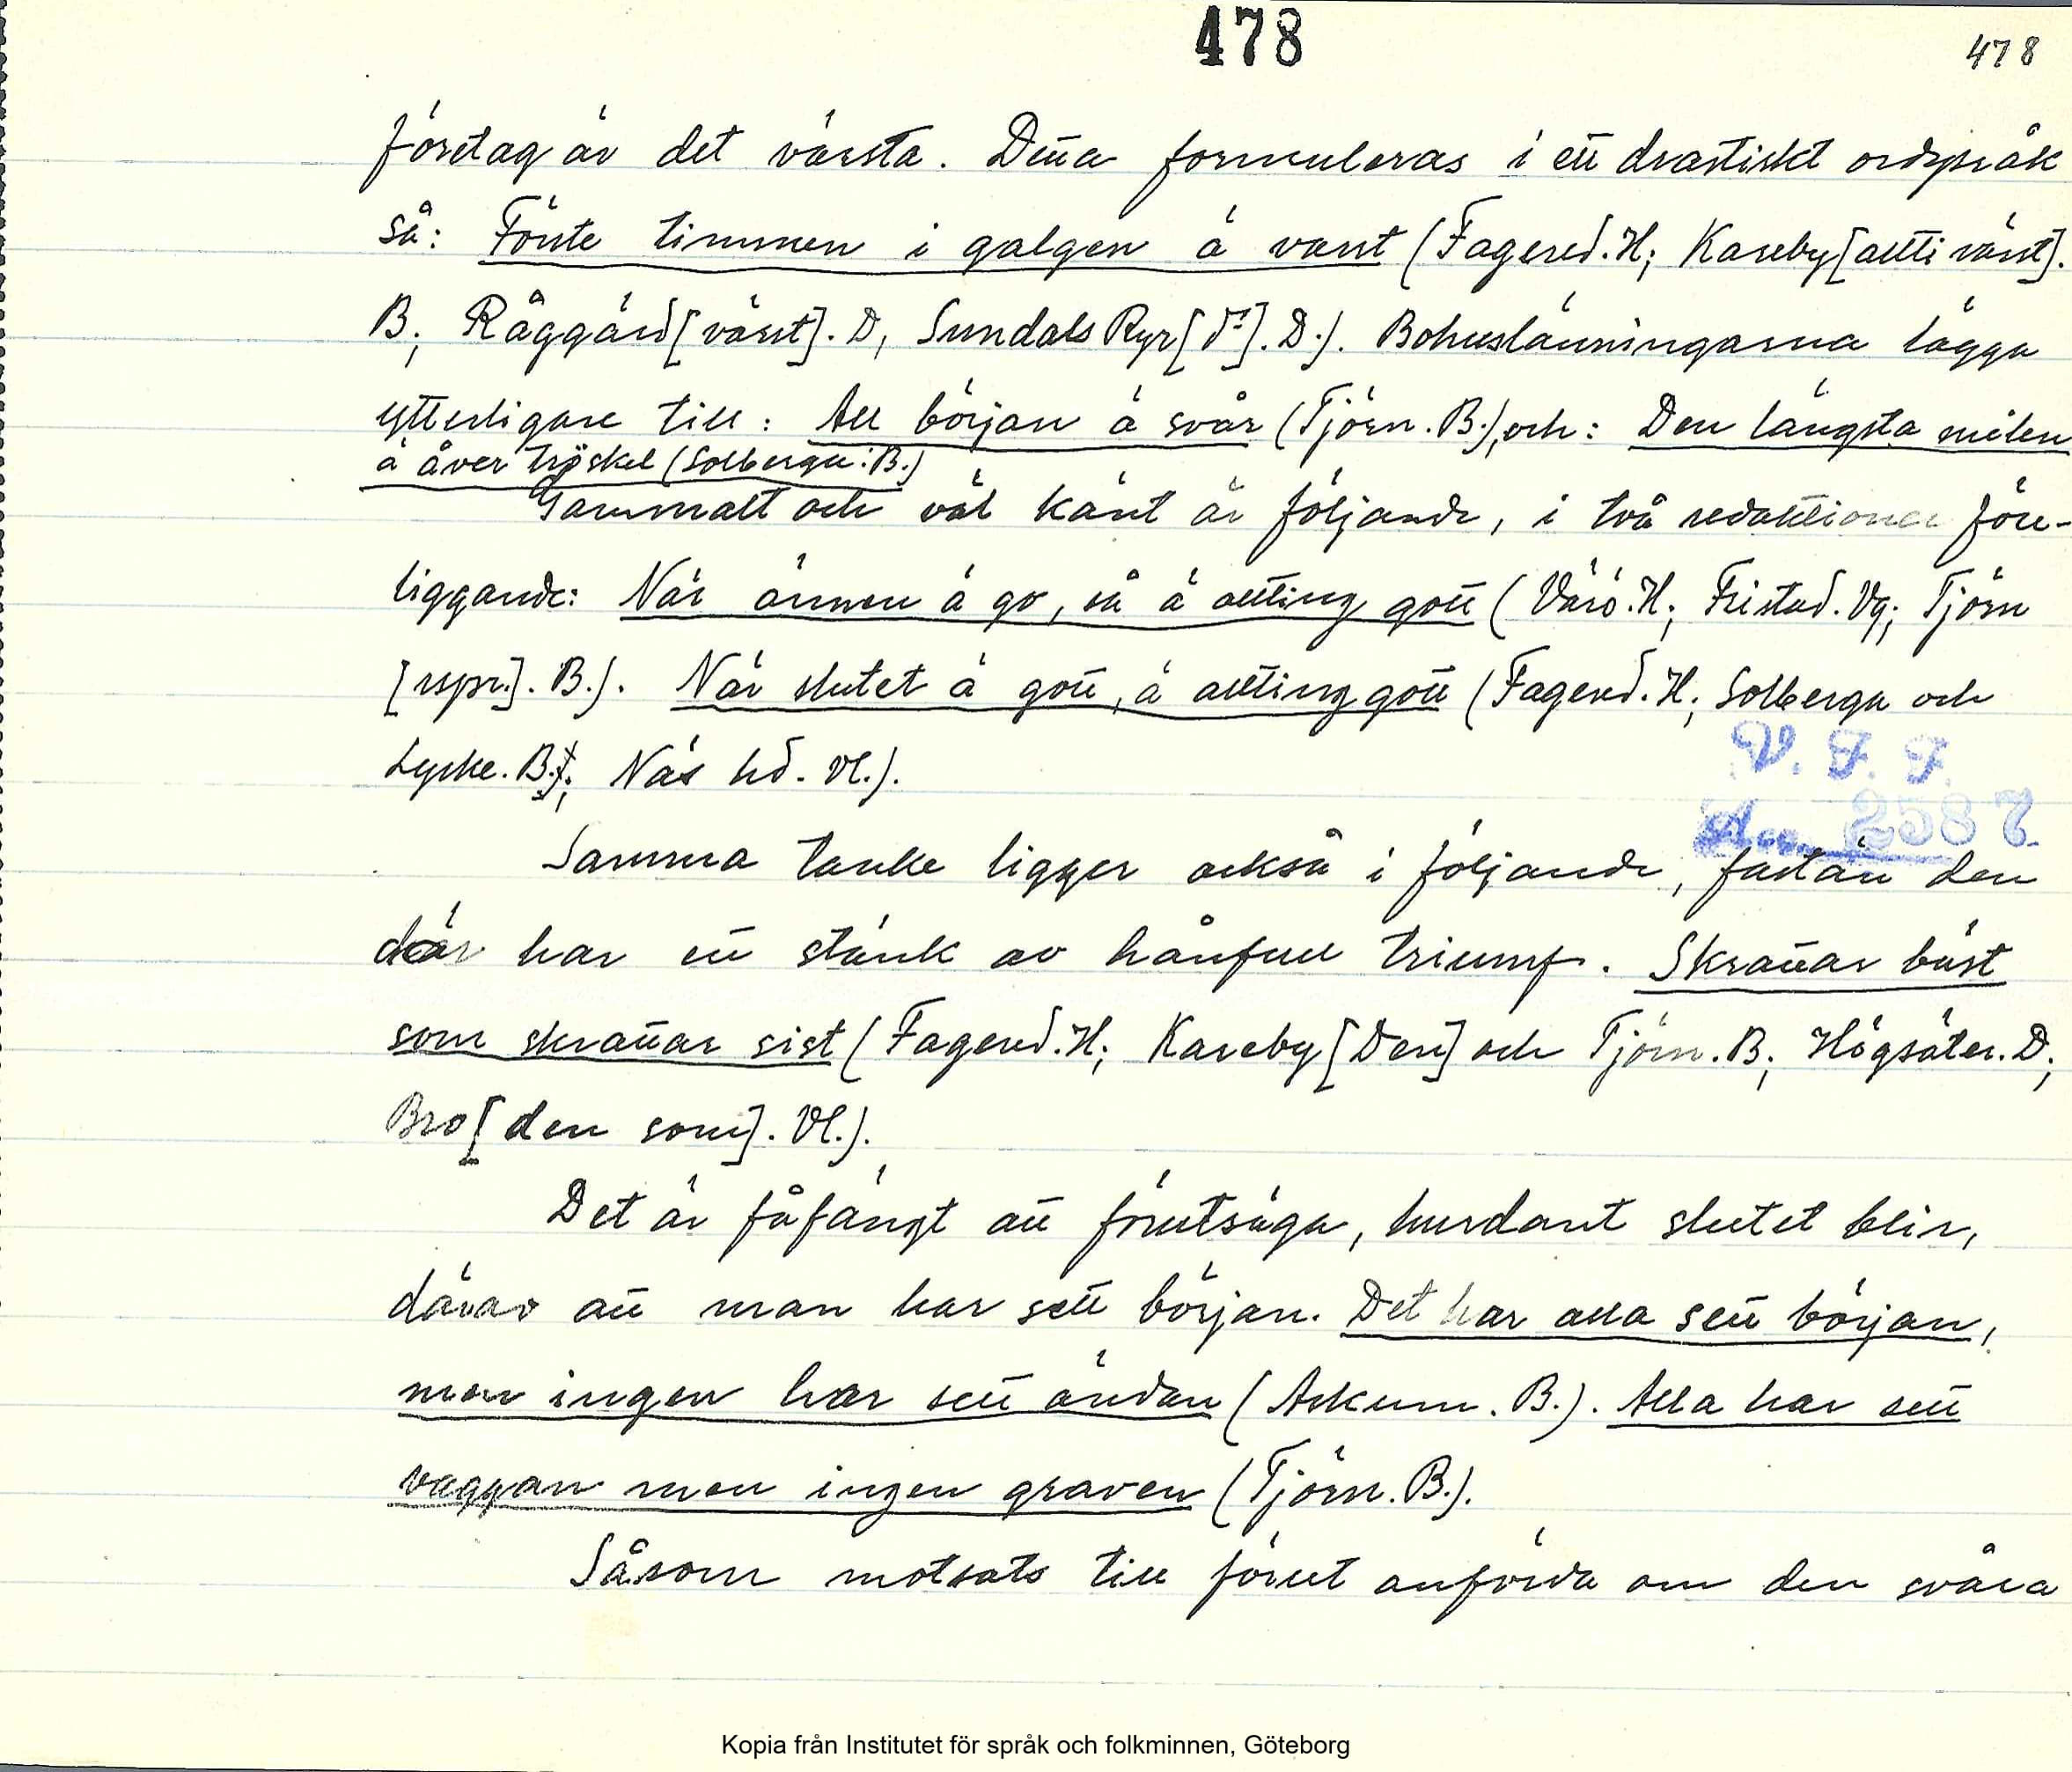 478
478
företag är det värsta. Detta formuleras i ett drastiskt ordspråk
så: Förste timmen i galgen ä varst (Fagered. H; Kareby [allti värst].
B; Råggärd [värst]. D, Sundals Ryr [d:o]. D.). Bohuslänningarna lägga
ytterligare till: All början ä svår (Tjörn. B.), och: Den längsta milen
ä åver tröskel (Solberga. B.)
Gammalt och väl känt är följande, i två redaktioner före-
liggande: När ännen ä go, så ä allting gott (Värö. H; Fristad. Vg; Tjörn
[rspr.]. B.). När slutet ä gott, ä allting gott (Fagered. H; Solberga och
Lycke. B.; Näs hd. Vl.).
V. F. F.
Acc. 2587
Samma tanke ligger också i följande, fastän den
där har ett stänk av hånfull triumf. Skrattar bäst
som skrattar sist (Fagered. H; Kareby [Den] och Tjörn. B; Högsäter. D;
Bro [den som]. Vl.).
Det är fåfängt att förutsäga, hurdant slutet blir,
därav att man har sett början. Det har alla sett början,
men ingen har sett ändan (Askum. B.). Alla har sett
vaggan men ingen graven (Tjörn. B.).
Såsom motsats till förut anförda om den svåra
Kopia från Institutet för språk och folkminnen, Göteborg